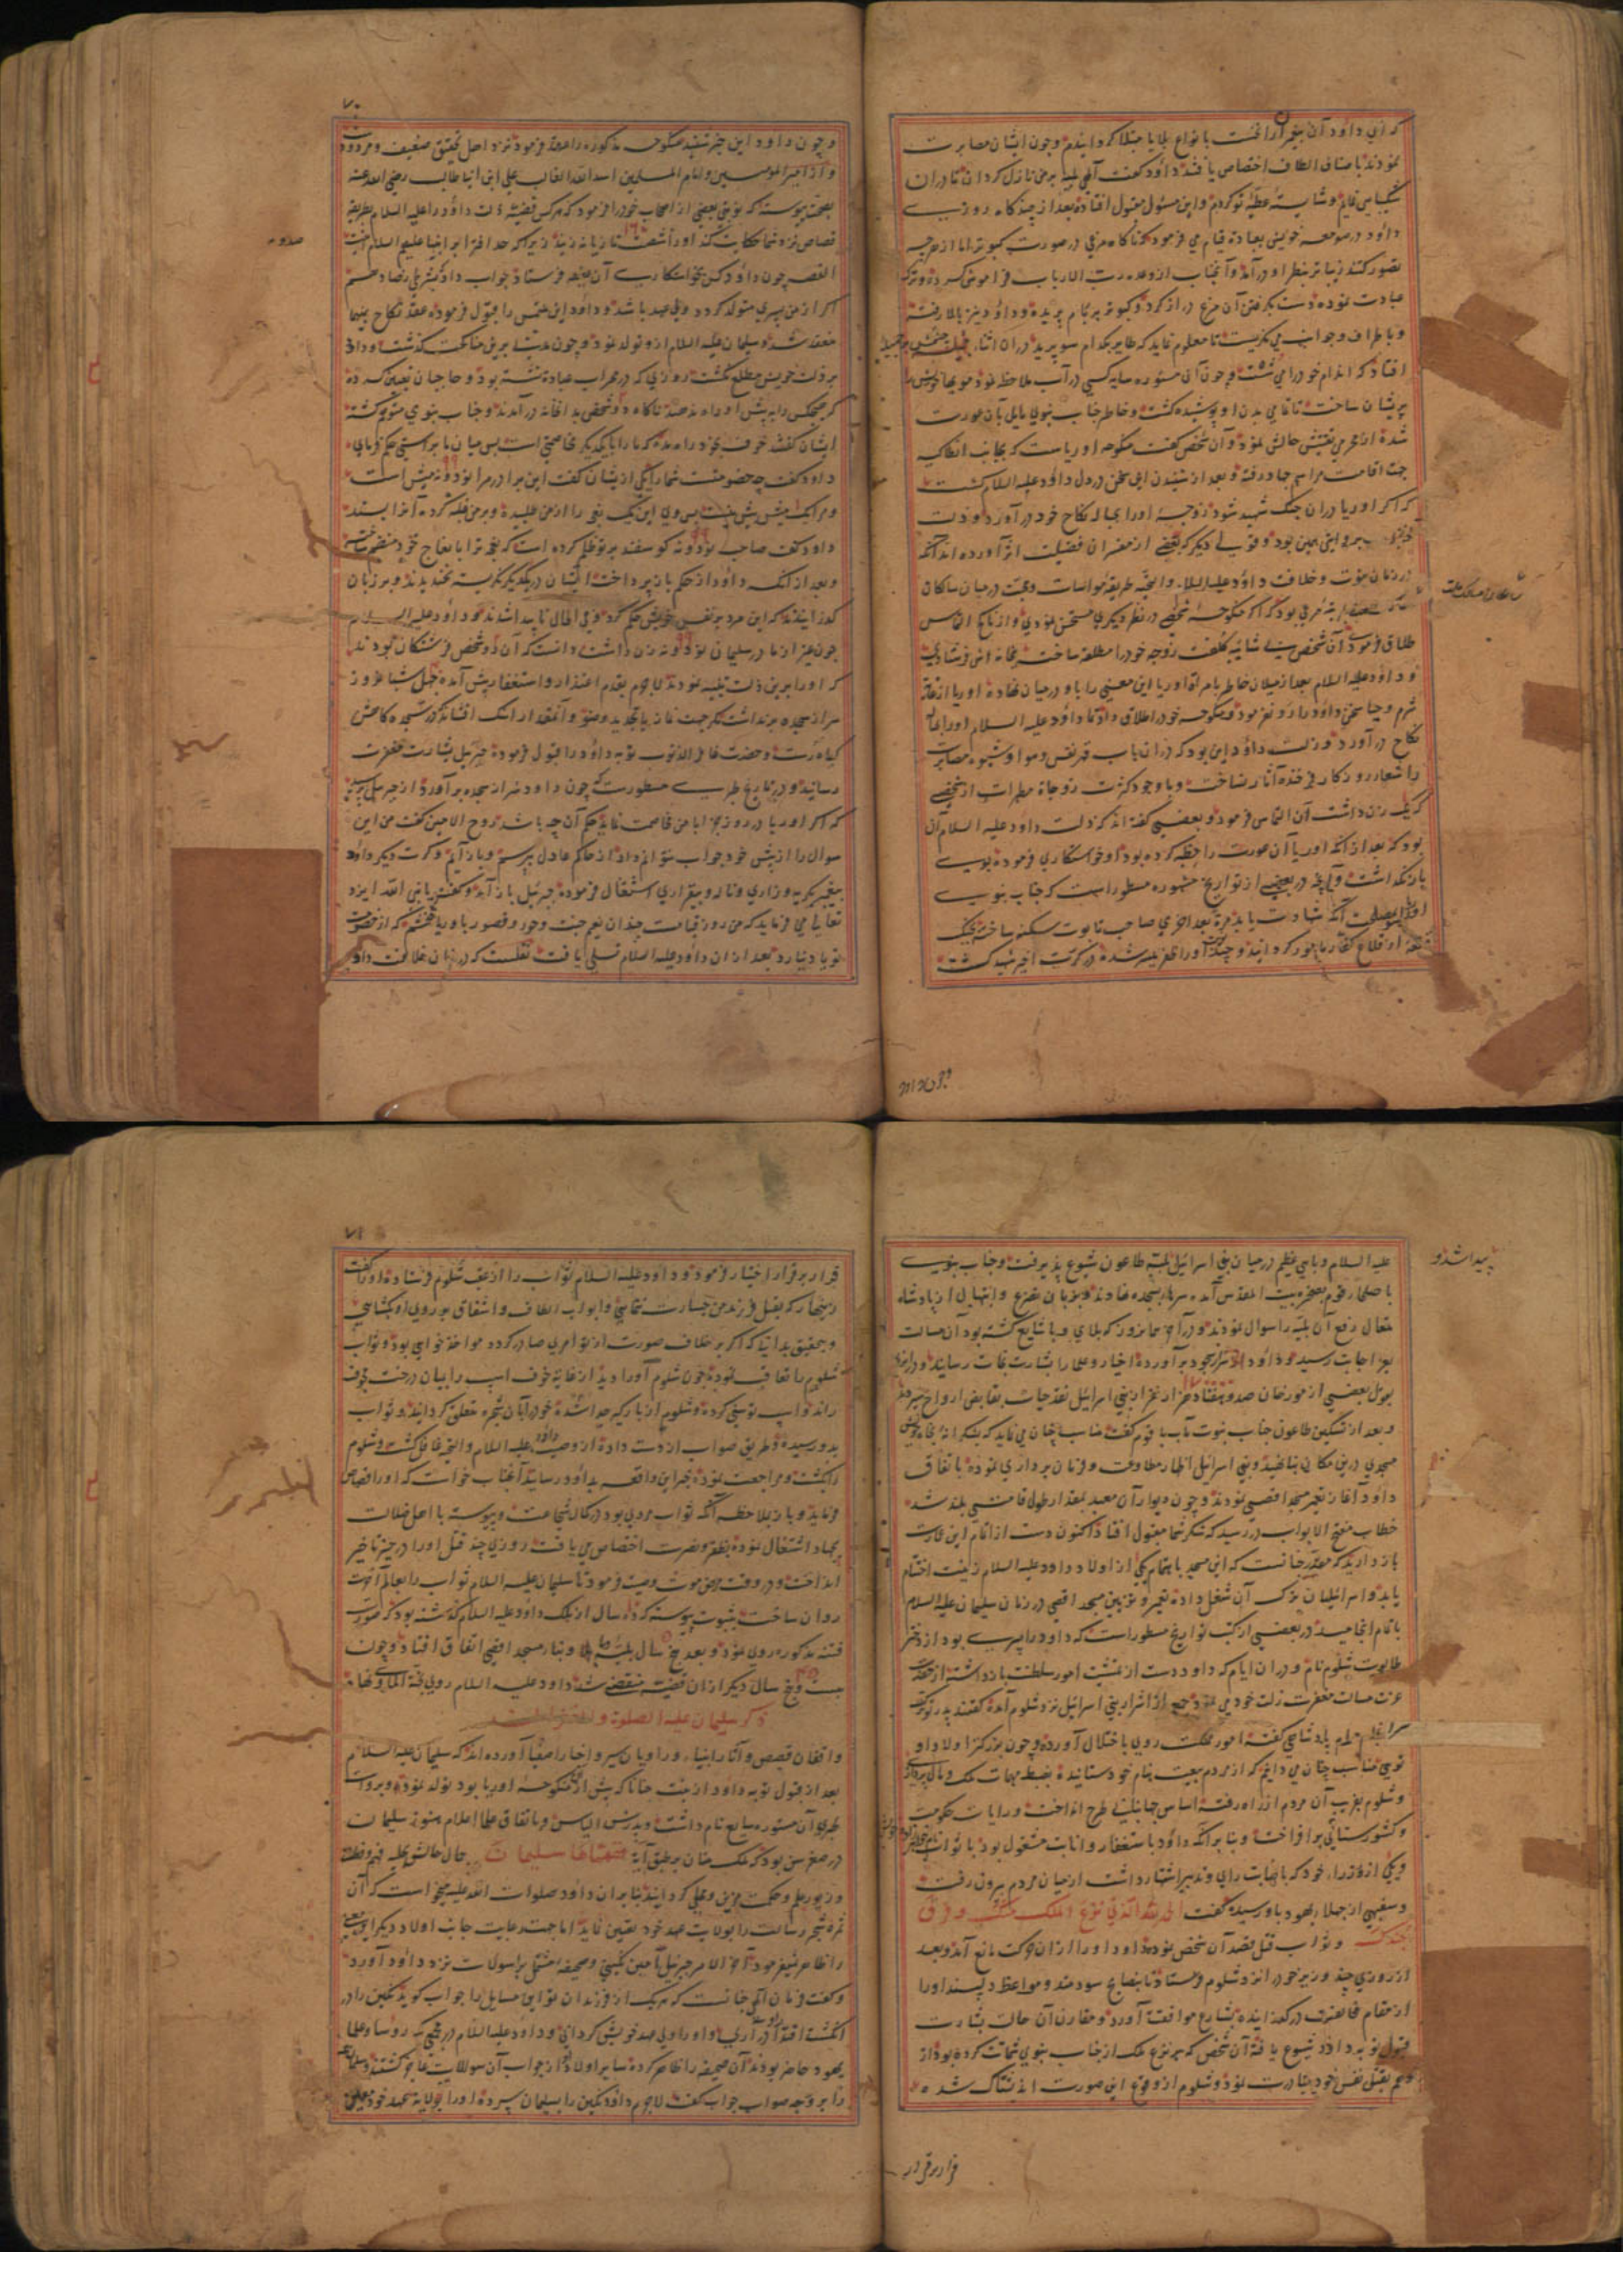 که ای داود آن پیغمبران را نخست بانواع بلایا مبتلا کردانیدم و چون ایشان مصابرت
نمودند باصناف الطاف اختصاص یافتند داود کفت الهی بلیه بر من نازل کردان تا در آن
شکیبایی نمایم و شایسته عطیه تو کردم و این مسئول مقبول افتاده بعد از چندکاه روزی
داود در صومعه خویش بعبادت قیام می فرمود که ناکاه مرغی در صورت کبوتر اما از هرچه
تصور کنند زیباتر بنظر او درآمد و آنجناب از وعده رب الارباب فراموش کرده و ترک
عبادت نموده دست بکرفتن آن مرغ دراز کرد و کبوتر بر بام پریده و داود نیز بالا رفته
و باطراف و جوانب می نکریست تا معلوم نماید که طایر بکدام سو پرید در آن اثنا
افتاد که اندام خود را می شست و چون آن مستوره سایه کسی در آب ملاحظه نمود مویها خویش را
پریشان ساخت تا تمامی بدن او پوشیده کشت و خاطر جناب نبوی مایل بآن عورت
شده از محرمی تفتیش حالش نمود و آن شخص کفت منکوحه اوریاست که بجانب انطاکیه
جهت اقامت مراسم جهاد رفته و بعد از شنیدن این سخن در دل داود علیه السلام کشت
که اکر اوریا در آن جنک شهید شود زوجه او را بحباله نکاح خود درآورد و ذلت
بر وایتی همین بود و قولی دیکر که بعضی از مفسران فضیلت اثر آورده اند آنکه
در زمان نبوت و خلافت داود علیه السلام والتحیه طریقه مواسات و محبت در میان ساکنان
بمرتبه مرعی بود که اکر منکوحه شخصی در نظر دیکری مستحسن نمودی و از ناکح التماس
طلاق فرمودی آن شخص بی شایبه تکلف زوجه خود را مطلقه ساخته بخانه اش فرستادی
و داود علیه السلام بعد از میلان خاطر بامراة اوریا این معنی را با او در میان نهاده اوریا از غایت
شرم و حیا سخن داود را رد نفرمود و منکوحه خود را طلاق داد تا داود علیه السلام او را بحباله
نکاح درآورد و زلت داود این بود که در آن باب قهر نفس و هوا و شیوه مصابرت
را شعار روزکار فرخنده آثار نساخت و با وجود کثرت زوجات مطهرات از شخصی
که یک زن داشت آن التماس فرمود و بعضی کفته اند که ذلت داود علیه السلام آن
بود که بعد از آنکه اوریا آن عورت را خطبه کرده بود او خواستکاری فرموده بوی
باز نکذاشت و آنچه در بعضی از تواریخ مشهوره مسطور است که جناب نبوی
آنکه شهادت یابد مرة بعد اخری صاحب تابوت سکینه ساخته بجنک
قلعه از قلاع کفار مامور کردانید و چند نوبت او را ظفر میسر شده در کرت اخیر شهید کشت
و چون داود این خبر شنید منکوحه مذکوره را عقد فرمود نزد اهل تحقیق ضعیف و مردود است
و از امیر المومنین و امام المسلمین اسد الله الغالب علی ابن ابی طالب رضی الله عنه
بصحت پیوسته که نوبتی بعضی از اصحاب خود را فرمود که هر کس قضیه ذلت داود را علیه السلام بطریقه
قصاص نزد شما حکایت کند او را صد و شصت تازیانه زنید زیرا که حد افترا بر انبیا علیهم السلام اینست
القصه چون داود کس بخواستکاری آن جمیله فرستاد جواب داد که بشرطی رضا دهم
اکر از من پسری متولد کردد ولی عهد باشد و داود این ملتمس را قبول فرموده عقد نکاح بینهما
منعقد شد و سلیمان علیه السلام از و تولد نمود و چون مدتی برین مناکحت کذشت و داود
بر ذلت خویش مطلع نکشت روزی که در محراب عبادة نشسته بود و حاجبان تعیین کرده
که هیچکس را به پیش او راه ندهند ناکاه دو شخص بد آنخانه درآمدند و جناب نبوی متوهم کشته
ایشان کفتند خوف بخود راه مده که ما را با یکدیکر مخاصمتی است پس میان ما براستی حکم فرمای
داود کفت چه خصومتست شما را یکی از ایشان کفت این برادر مرا نود و نه میش است
و مرا یک میش بیش نیست پس وی این یک نیز را از من طلبیده و بر من غلبه کرده آنرا بستد
داود کفت صاحب نود و نه کوسفند بر تو ظلم کرده است که نعجه ترا با نعاج خود منضم ساخته
و بعد از آنکه داود از حکم باز پرداخت ایشان در یکدیکر نکریسته بخندیدند و بر زبان
کذرانیدند که این مرد بر نفس خویش حکم کرد و فی الحال ناپیدا شدند و داود علیه السلام
چون غیر از مادر سلیمان نود و نه زن داشت دانست که آن دو شخص فرشتکان بودند
که او را برین ذلت تنبیه نمودند لاجرم بقدم اعتذار و استغفار پیش آمده چهل شبانروز
سر از سجده برنداشت مکر جهت نماز یا تجدید وضو و آنمقدار اشک افشاند که در سجده کاهش
کیاه رست و حضرت غافر الذنوب توبه داود را قبول فرموده جبرئیل بشارت مغفرت
رسانید و در تاریخ طبری مسطورست که چون داود سر از سجده برآورد از جبرئیل پرسید
که اکر اوریا در روز جزا با من مخاصمت نماید حکم آن چه باشد روح الامین کفت من این
سوال را از پیش خود جواب نتوانم داد از حاکم عادل بپرسم و باز آیم و کرت دیکر داود
پیغمبر بکریه و زاری و ناله و بیقراری اشتغال فرموده جبرئیل باز آمد و کفت یا نبی الله ایزد
تعالی می فرماید که من روز قیامت چندان نعیم جنت و حور و قصور باوریا بخشم که از خصومت
تو یاد نیارد بعد از آن داود علیه السلام تسلی یافت نقلست که در زمان خلافت داود
علیه السلام وبایی عظیم در میان بنی اسرائیل بلیه طاعون شیوع پذیرفت و جناب نبوی
با صلحاء قوم بصخره بیت المقدس آمده سرها بسجده نهادند و بزبان تضرع و ابتهال از پادشاه
متعال رفع آن بلیه را سوال نمودند و در آخر همان روز که بلای وبا شایع کشته بود آن مسالت
بعز اجابت رسید و داود سر از سجود برآورده اخیار و علما را بشارت نجات رسانید و در آنروز
بقول بعضی از مورخان صد و هفتاد هزار نفر از بنی اسرائیل نقد حیات بقابض ارواح سپردند
و بعد از تسکین طاعون جناب نبوت مآب با قوم کفت مناسب چنان می نماید که بشکرانه نجات خویش
مسجدی درین مکان بنا نهید و بنی اسرائیل اظهار مطاوعت و فرمان برداری نموده باتفاق
داود آغاز تعمیر مسجد اقصی نمودند و چون دیوار آن معبد بمقدار طول قامتی بلند شد
خطاب مفتح الابواب در رسید که شکر شما مقبول افتاد اکنون دست از اتمام این عمارت
باز دارید که مقدر چنانست که این مسجد باهتمام یکی از اولاد داود علیه السلام زینت اختتام
یابد و اسرائیلیان ترک آن شغل داده تعمیر و تزیین مسجد اقصی در زمان سلیمان علیه السلام
باتمام انجامید در بعضی از کتب تواریخ مسطور است که داود را پسری بود از دختر
طالوت شلوم نام و در آن ایام که داود دست از تمشیت امور سلطنت باز داشته از حضرت
عزت مسالت مغفرت زلت خود می نمود جمعی از اشرار بنی اسرائیل نزد شلوم آمده کفتند پدر تو ترک
سرانجام مهام پادشاهی کفته امور مملکت روی باختلال آورده و چون بزرکتر اولاد او
تویی مناسب چنان می دانیم که از مردم بیعت بنام خود ستانیده بضبط مهمات ملک و مال پردازی
و شلوم بفریب آن مردم از راه رفته اساس جهانبانی طرح انداخت و رایات حکومت
و کشورستانی برافراخت و بنا بر آنکه داود باستغفار و انابت مشغول بود با ثواب
و یکی از وزراء خود که باصابت رای و تدبیر اشتهار داشت از میان مردم بیرون رفت
و سفیهی از جهلاء یهود باو رسیده کفت الحمد لله الذی نزع الملک منک و فرق
جندک و ثواب قتل قصد آن شخص نموده داود او را از آن حرکت مانع آمد و بعد
از روزی چند وزیر خود را نزد شلوم فرستاد تا بنصایح سودمند و مواعظ دلپسند او را
از مقام مخالفت درکذرانیده بشارع موافقت آورد و مقارن آن حالت بشارت
قبول توبه داود شیوع یافته آن شخص که بر نزع ملک از جناب نبوی شماتت کرده بود از
وهم بقتل نفس خود مبادرت نمود و شلوم از وقوع این صورت اندیشناک شده
قرار بر فرار اختیار فرمود و داود علیه السلام ثواب را از عقب شلوم فرستاده او را کفت
زینهار که بقتل فرزند من جسارت ننمایی و ابواب الطاف و اشفاق بر روی او بکشایی
و بتحقیق بدانیا که اکر بر خلاف صورت از تو امری صادر کردد مواخذ خواهی بود و ثواب
شلوم را تعاقب نموده چون شلوم او را دید از غایة خوف اسپ را بمیان درخت مجوف
راند و اسپ توسنی کرده و شلوم از بارکیر جدا شده خود را بآن شجره متعلق کردانید و ثواب
بدو رسیده و طریق صواب از دست داده از وصیت داود علیه السلام والتحیه غافل کشت و شلوم
را بکشت و مراجعت نموده خبر این واقعه بداود رسانید آنجناب خواست که او را قصاص
فرماید و باز بملاحظه آنکه ثواب مردی بود در کمال شجاعت و پیوسته با اهل ضلالت
بجهاد اشتغال نموده بظفر و نصرت اختصاص می یافت روزی چند قتل او را در حیز تاخیر
انداخت و در وقت مرض موت وصیت فرمود تا سلیمان علیه السلام ثواب را بعالم آخرت
روان ساخت بثبوت پیوسته که ده سال از ملک داود علیه السلام کذشته بود که صورت
فتنه مذکوره روی نمود و بعد پنج سال بلیه وبا و بناء مسجد اقصی اتفاق افتاد و چون
بیست و پنج سال دیکر از آن قضیه منقضی شد داود علیه السلام روی بجنة الماوی نهاد
ذکر سلیمان علیه الصلوة و
واقفان قصص و آثار انبیاء و راویان سیر و اخبار اصفیا آورده اند که سلیمان علیه السلام
بعد از قبول توبه داود از بنت حنانا که پیش ازو منکوحه اوریا بود تولد نمود و بروایت
طبری آن مستوره سایع نام داشت و بدرس الیاس و باتفاق علماء اعلام هنوز سلیمان
در صغر سن بود که ملک منان بر طبق آیه ففهمناها سلیمان جمال حالش بحلیه فهم و فطنة
و زیور علم و حکمت مزین و محلی کردانید بنابر آن داود صلوات الله علیه میخواست که آن
ثمره شجره رسالت را بولایت عهد خود تعیین نماید اما جهت رعایت جانب اولاد دیکر این معنی
را ظاهر نمیفرمود آخر الامر جبرئیل امین نکینی و صحیفه مشتمل بر اسولات نزد داود آورد
و کفت فرمان الهی چنانست که هر یک از فرزندان تو این مسایل را جواب کوید نکین را در
انکشت اقتدار او درآری و او را ولی عهد خویش کردانی و داود علیه السلام در مجمعی که رؤسا و علماء
یهود حاضر بودند آن صحیفه را ظاهر کرده سایر اولاد از جواب آن سوالات عاجز کشتند و سلیمان همه
را بر وجه صواب جواب کفت لاجرم داود نکین را بسلیمان سپرده او را بولایة عهد خود معین